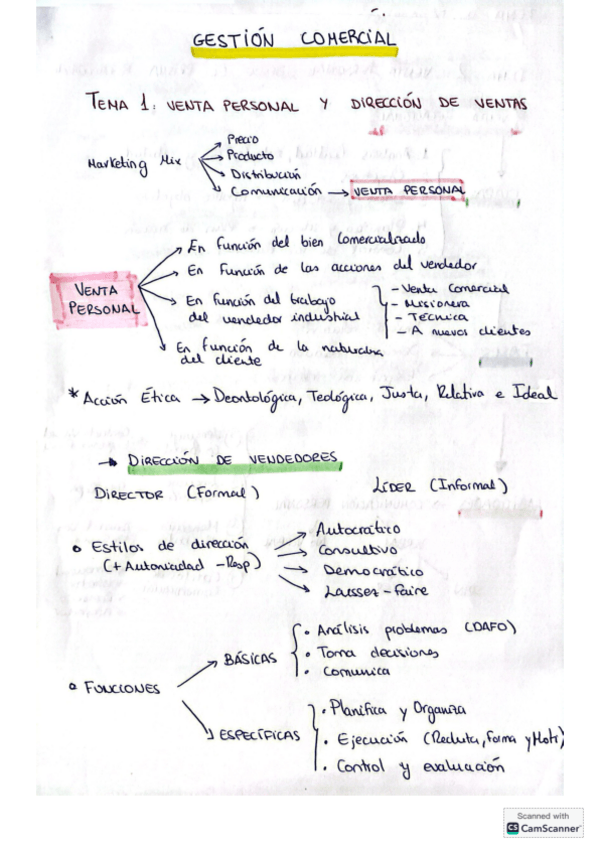 GESTIÓN COMERCIAL
TEMA 1: VENTA PERSONAL Y DIRECCIÓN DE VENTAS
Marketing Mix
Precio
Producto
Distribución
Comunicación → VENTA PERSONAL
VENTA PERSONAL
En función del bien comercializado
En función de las acciones del vendedor
En función del trabajo del vendedor industrial
- Venta comercial
- Missionera
- Técnica
- A nuevos clientes
En función de la naturaleza del cliente
* Acción Ética → Deontológica, Teológica, Justa, Relativa e Ideal
→ DIRECCIÓN DE VENDEDORES
DIRECTOR (Formal)
LÍDER (Informal)
Estilos de dirección
(+ Autoridad - Resp)
Autocrático
Consultivo
Democrático
Laissez-faire
FUNCIONES
BÁSICAS
• Análisis problemas (DAFO)
• Toma decisiones
• Comunica
ESPECÍFICAS
• Planifica y Organiza
• Ejecución (Recluta, forma y Motv)
• Control y evaluación
Scanned with
CS CamScanner